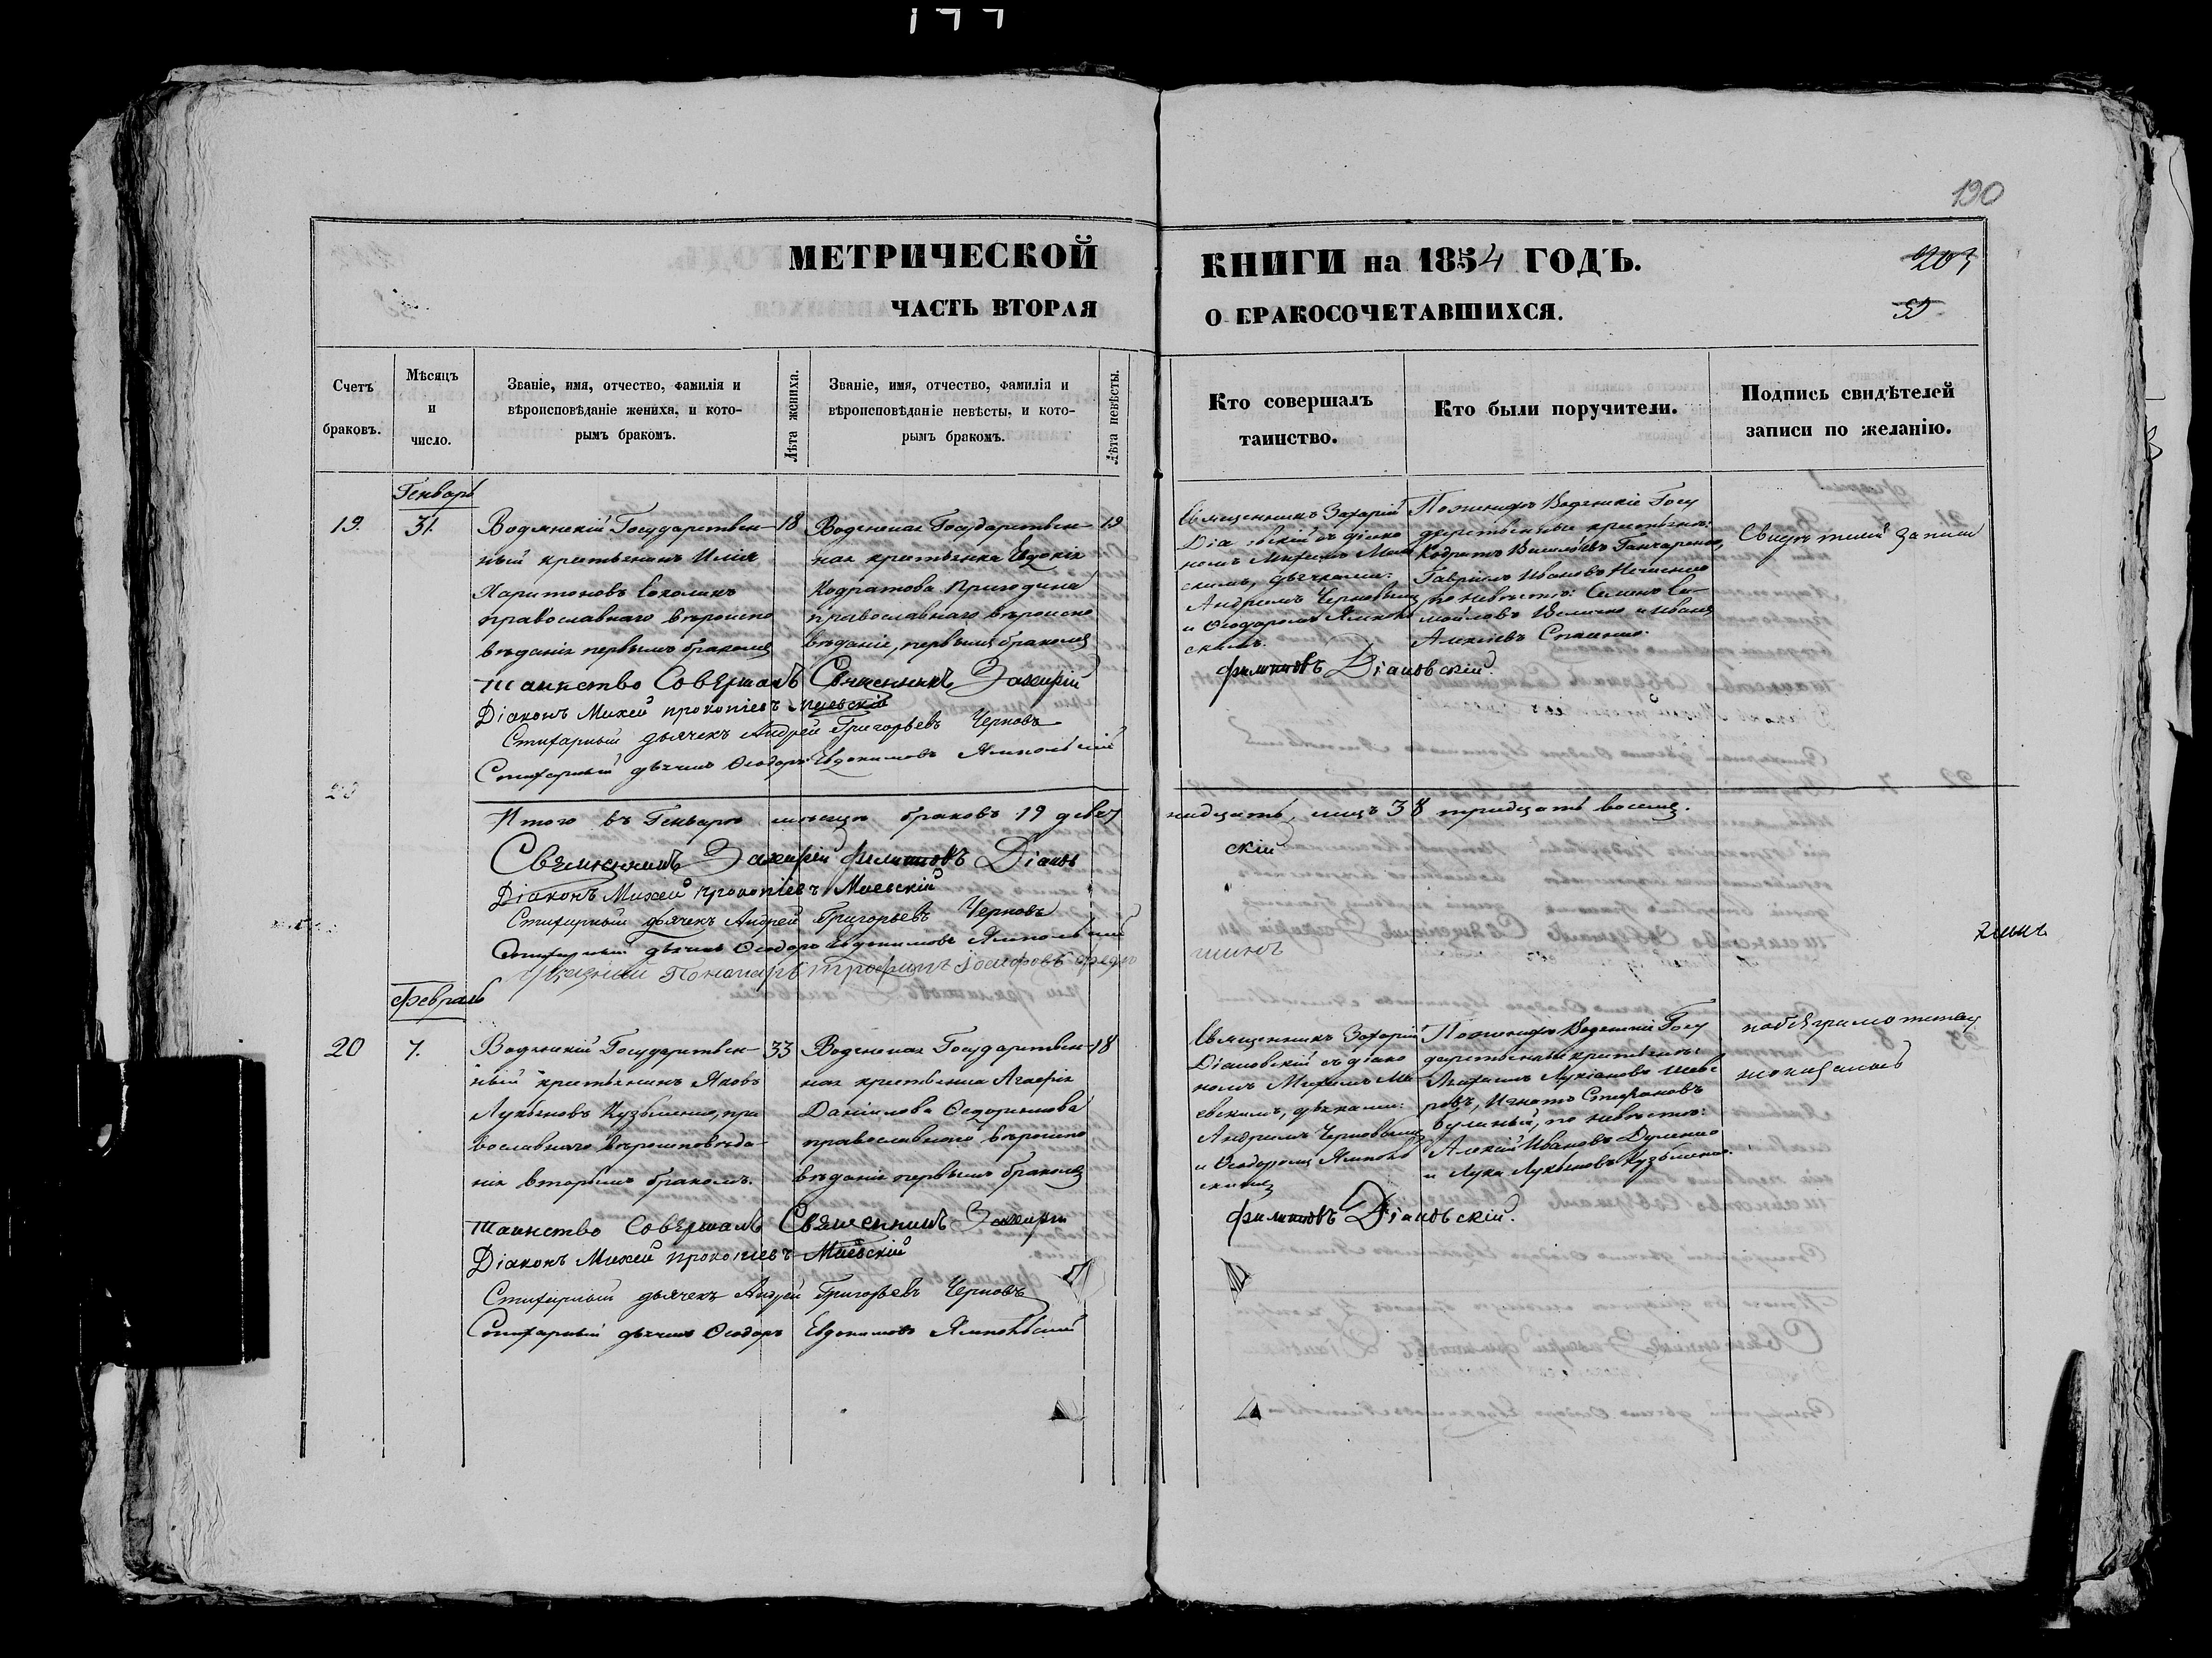 190
МЕТРИЧЕСКОЙ
КНИГИ на 1854 ГОДЪ.
ЧАСТЬ ВТОРАЯ
О БРАКОСОЧЕТАВШИХСЯ.
Счетъ браковъ.
Мѣсяцъ и число.
Званіе, имя, отчество, фамилія и
вѣроисповѣданіе жениха, и кото-
рымъ бракомъ.
Лѣта жениха.
Званіе, имя, отчество, фамилія и
вѣроисповѣданіе невѣсты, и кото-
рымъ бракомъ.
Лѣта невѣсты.
Кто совершалъ
таинство.
Кто были поручители.
Подпись свидѣтелей
записи по желанію.
Генварь
19.
31.
Водянскій Государствен-
ный крестьянинъ Илія
Харитоновъ Соколикъ
православнаго вѣроиспо
вѣданія первымъ бракомъ
18
Водянская Государствен-
ная крестьянка Евдокія
Кодратова Пригодина
православнаго вѣроиспо
вѣданія, первымъ бракомъ
19
Священникъ Захарій
Діановскій съ діако
номъ Михеемъ Маев
скимъ, дьячками:
Андреемъ Черновымъ
и Ѳеодоромъ Ямполь
скимъ.
По женихѣ Водянскіе Госу
дарственные крестьяне:
Кодратъ Гончаренко,
Гавріилъ Ивановъ
по невѣстѣ: Семенъ Са-
мойловъ Величко и Иванъ
Алексѣевъ
Свидѣтелей записи
Таинство Совершалъ Священникъ Захарій
Филиповъ Діановскій.
Діаконъ Михей Прокопіевъ Маевскій
Стихарный дьячекъ Андрей Григорьевъ Черновъ
Стихарный дьячекъ Ѳеодоръ Евдокимовъ Ямпольскій
Итого въ Генварѣ мѣсяцѣ браковъ 19 девят
надцать, лицъ 38 тридцать восемь.
Священникъ Захарій Филиповъ Діанов
скій
Діаконъ Михей Прокопіевъ Маевскій
Стихарный дьячекъ Андрей Григорьевъ Черновъ
Стихарный дьячекъ Ѳеодоръ Евдокимовъ Ямпольскій
Пономарь Трофимъ Іосифовъ
Февраль
20
7.
Водянскій Государствен-
ный крестьянинъ Яковъ
Лукьяновъ Кузьменко, пра
вославнаго вѣроисповѣда-
нія вторымъ бракомъ.
33
Водянская Государствен-
ная крестьянка Агафія
Даніилова Ѳедоришова
православнаго вѣроиспо
вѣданія первымъ бракомъ
18
Священникъ Захарій
Діановскій съ діако
номъ Михеемъ Ма-
евскимъ, дьячками:
Андреемъ Черновымъ
и Ѳеодоромъ Ямполь
скимъ
По женихѣ Водянскіе Госу
дарственные крестьяне:
Лукіановъ
Игнатъ Стефановъ
по невѣстѣ:
Алексѣй Ивановъ Дуленко
и Лука Лукьяновъ Кузьменко.
Таинство Совершалъ Священникъ Захарій
Филиповъ Діановскій.
Діаконъ Михей Прокопіевъ Маевскій
Стихарный дьячекъ Андрей Григорьевъ Черновъ
Стихарный дьячекъ Ѳеодоръ Евдокимовъ Ямпольскій